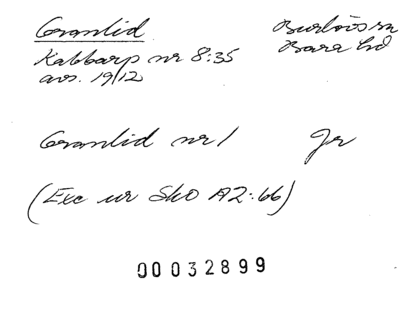 Granlid Burlövs sn
Kabbarp nr 8:35 Bara hd
avs. 19/12
Granlid nr 1 Jr
(Exc ur Sko A2:66)
00032899